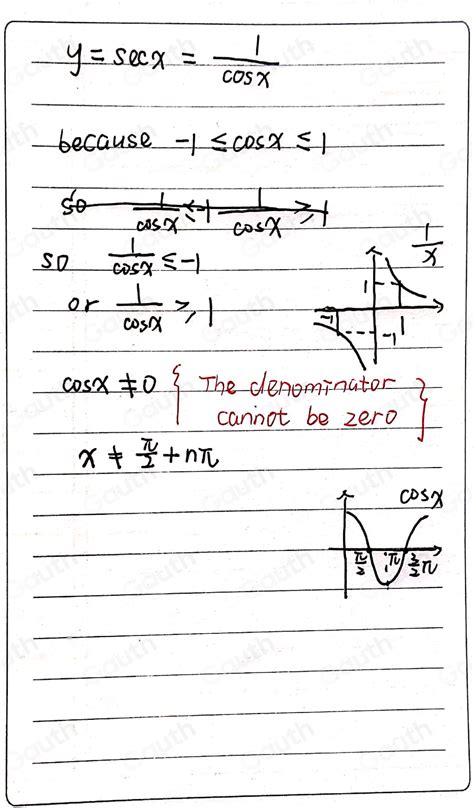 y = secx = 1/cosx
because -1 ≤ cosx ≤ 1
so 1/cosx ≤ -1 1/cosx ≥ 1
so 1/cosx ≤ -1
or 1/cosx ≥ 1
1/x
1
-1
1
-1
cosx ≠ 0 { The denominator cannot be zero }
x ≠ π/2 + nπ
cosx
π/2 π 3/2 π
Gauth